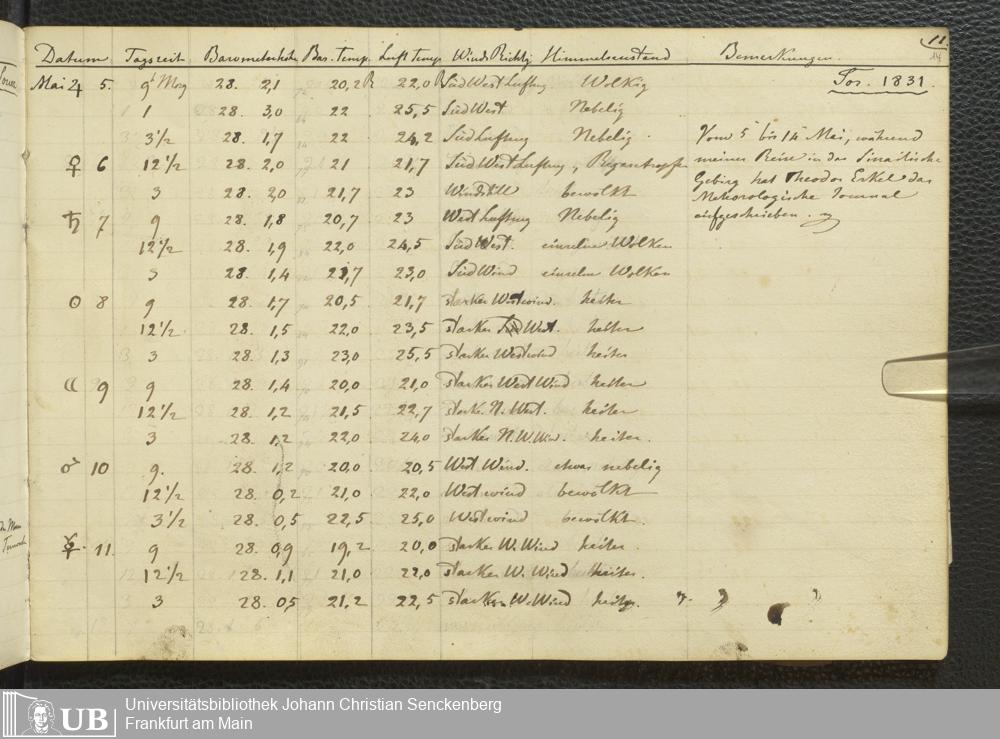 11.
14
Datum Tagszeit Barometerhöh Bar. Temp. Luft Temp. Winds Richtg Himmelszustand Bemerkungen.
Tor. 1831.
Mai ♃ 5. 9h Morg 28. 2,1 20,2 R 22,0 R Süd West Luftung Wolkig
1 28. 3,0 22 25,5 Süd West Nebelig
3½ 28. 1,7 22 24,2 Süd Luftung Nebelig.
♀ 6 12½ 28. 2,0 21 21,7 Süd West Luftung, Regentropfe
3 28. 2,0 21,7 23 Windstill bewölkt
♄ 7 9 28. 1,8 20,7 23 West Luftung Nebelig
12½ 28. 1,9 22,0 24,5 Süd West. einzelne Wolken
3 28. 1,4 21,7 23,0 Süd Wind einzelne Wolken
☉ 8 9 28. 1,7 20,5 21,7 starker Westwind. heiter
12½ 28. 1,5 22,0 23,5 starker Süd West. heiter
3 28. 1,3 23,0 25,5 starker Westwind heiter
☾ 9 9 28. 1,4 20,0 21,0 starker West Wind heiter
12½ 28. 1,2 21,5 22,7 starker N. West. heiter
3 28. 1,2 22,0 24,0 starker N. W. Win. heiter.
♂ 10 9. 28. 1,2 20,0 20,5 West Wind. etwas nebelig
12½ 28. 0,2 21,0 22,0 Westwind bewölkt
3½ 28. 0,5 22,5 25,0 Westwind bewölkt.
☿ 11. 9 28. 0,9 19,2 20,0 starker W. Wind heiter.
12½ 28. 1,1 21,0 22,0 starker W. Wind heiter.
3 28. 0,5 21,2 22,5 starker W. Wind heiter.
Vom 5 bis 14 Mai, während
meiner Reise in das Sinaitische
Gebirg hat Theodor Erkel das
Meteorologische Journal
aufgeschrieben.
UB
Universitätsbibliothek Johann Christian Senckenberg
Frankfurt am Main